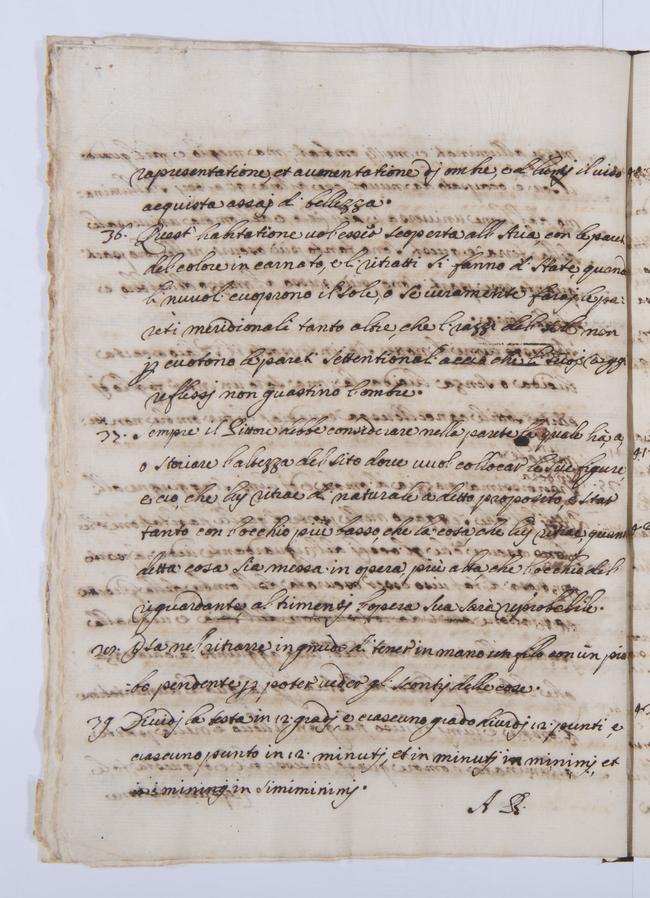 rapresentatione, et aumentatione dj ombre, e dj lumj il uiso
acquista assaj dj bellezza.
36. Quest' habitatione uol esser scoperta all' Aria, con le pareti
del colore incarnato, e li ritratti si fanno d'state, quando
li nuuoli cuoprono il sole, o se ueramente farai le pa:
reti meridionali tanto alte, che li razzi del sole non
percuotono le pareti settentrionali acciò che li suoj raggi
reflessj non guastino l'ombre.
37. empre il Pittore debbe considerare nella parete la quale hà a
o storiare l'altezza del sito doue uuol collocar le sue figure,
e ciò, che luj ritrae di naturale a detto proposito, e star
tanto con l'occhio più basso, che la cosa, che luj ritrae, quant
detta cosa sia messa in opera più alta, che l'occhio del
riguardante, altrimentj l'opera sua sarà reprobebile.
38. Usa nel ritrarre ingnudo di tener in mano un filo con un piō
bo pendente per poter ueder gl' scontrj delle cose.
39 Diuidj la testa in 12 gradj, e ciascuno grado diuidj 12. puntj, e
ciascuno punto in 12. minutj, et in minutj in minimj, et
in minimj in simiminimj.
A R.